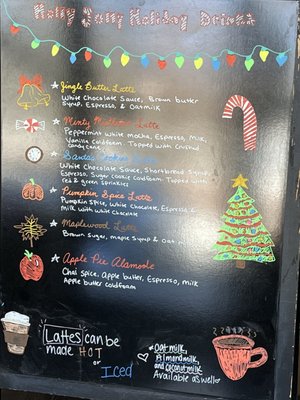 Holly Jolly Holiday Drinks
Jingle Butter Latte
White Chocolate Sauce, Brown butter
Syrup, Espresso, & Oatmilk
Minty Mallow Latte
Peppermint white mocha, Espresso, Milk,
Vanilla coldfoam. Topped with crushed
candy cane
Santa's Cookies Latte
White Chocolate Sauce, Shortbread Syrup,
Espresso, Sugar Cookie coldfoam. Topped with
red & green sprinkles
Pumpkin Spice Latte
Pumpkin Spice, White Chocolate, Espresso &
Milk with white chocolate
Maplewood Latte
Brown Sugar, maple Syrup & Oat
Apple Pie Alamode
Chai Spice, Apple butter, Espresso, milk
Apple butter coldfoam
Lattes can be
made HOT
or Iced
*Oatmilk,
Almondmilk,
and Coconutmilk
Available aswell*